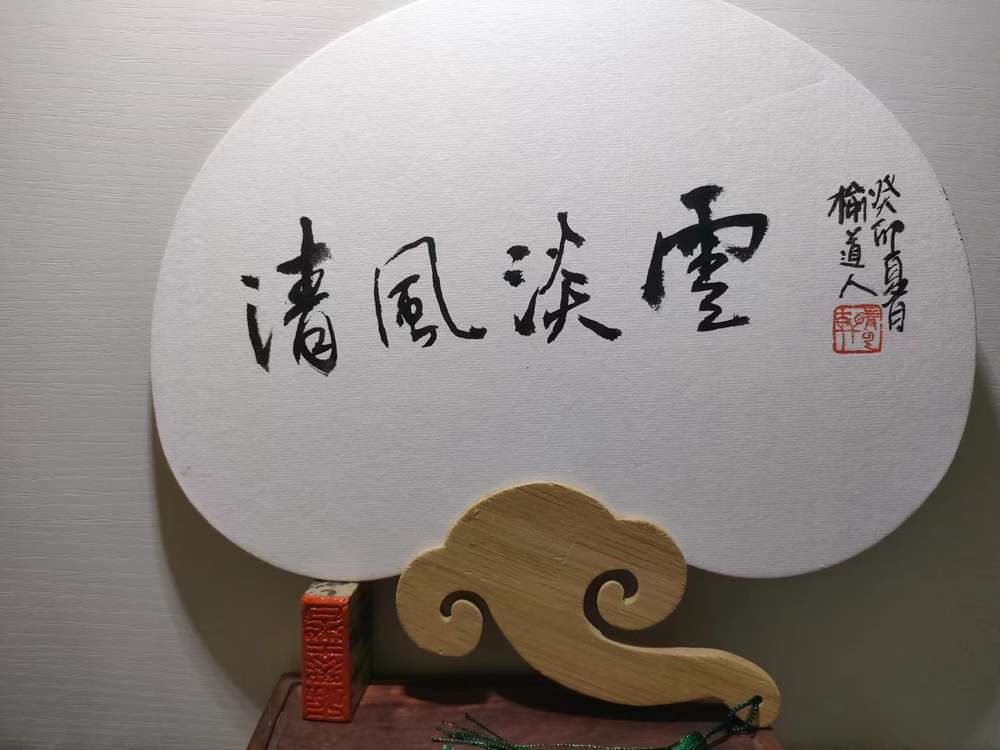 清風淡雲
癸卯夏月
榆道人